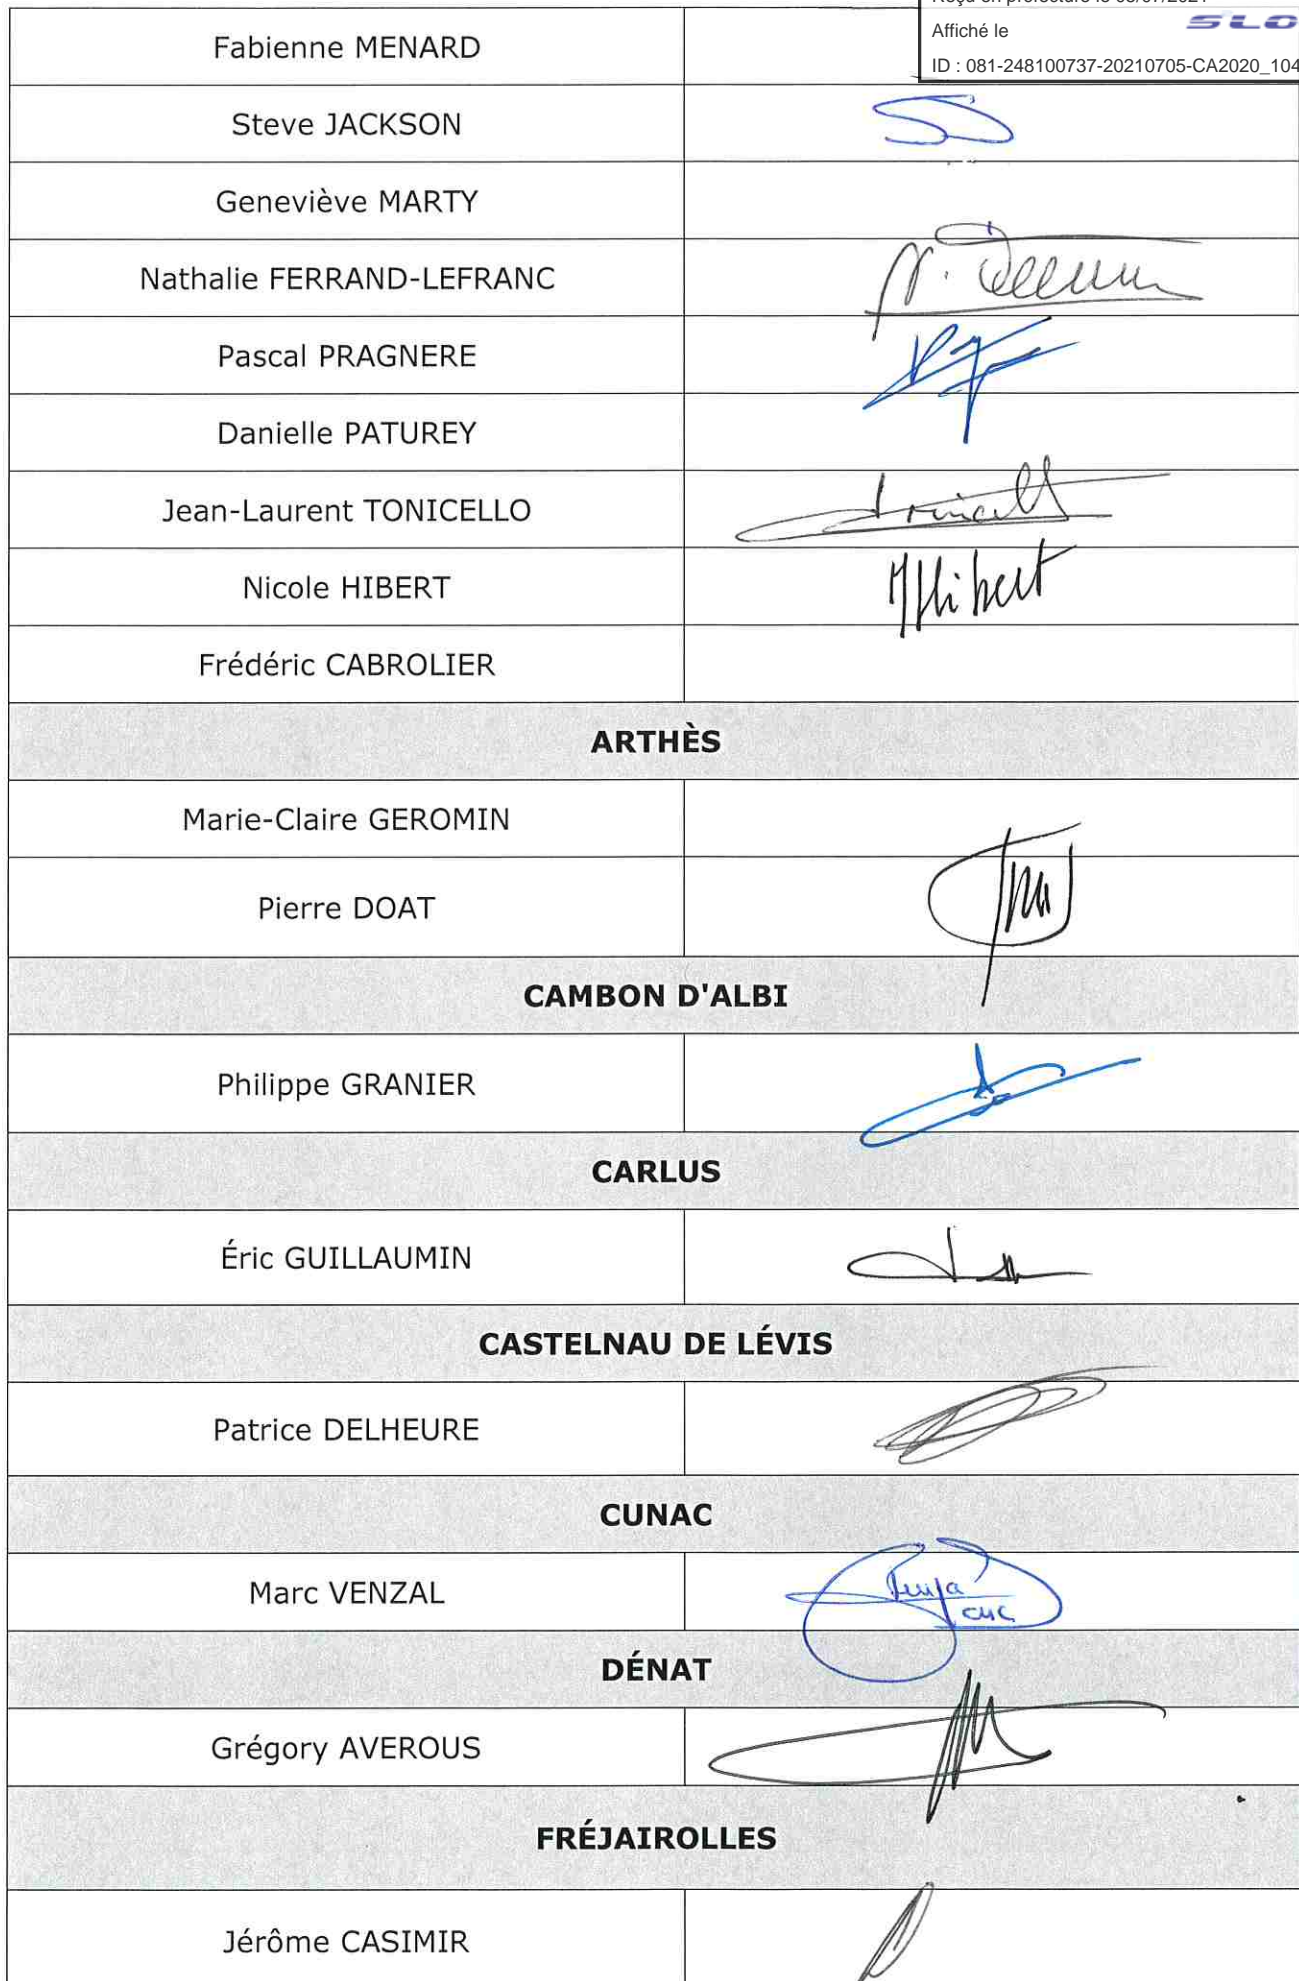 Affiché le
SLO
ID : 081-248100737-20210705-CA2020_104
Fabienne MENARD
Steve JACKSON
Geneviève MARTY
Nathalie FERRAND-LEFRANC
Pascal PRAGNERE
Danielle PATUREY
Jean-Laurent TONICELLO
Nicole HIBERT
Hibert
Frédéric CABROLIER
ARTHÈS
Marie-Claire GEROMIN
Pierre DOAT
CAMBON D'ALBI
Philippe GRANIER
CARLUS
Éric GUILLAUMIN
CASTELNAU DE LÉVIS
Patrice DELHEURE
CUNAC
Marc VENZAL
DÉNAT
Grégory AVEROUS
FRÉJAIROLLES
Jérôme CASIMIR